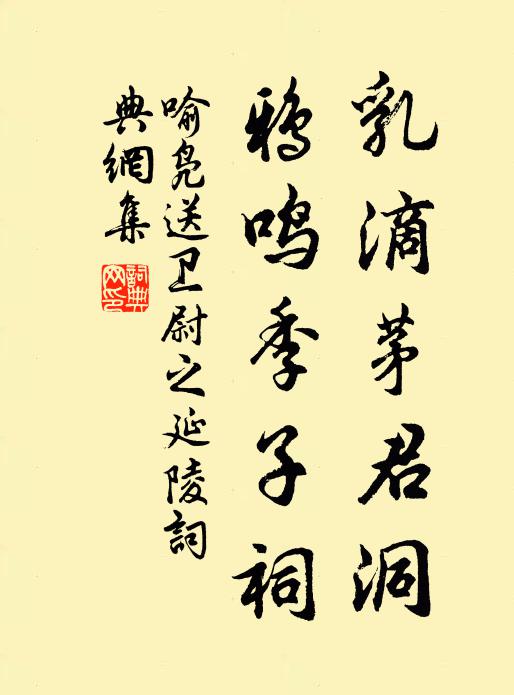 乳滴茅君洞
鸦鸣季子祠
喻凫送卫尉之延陵詞
典網集
詞典
网印